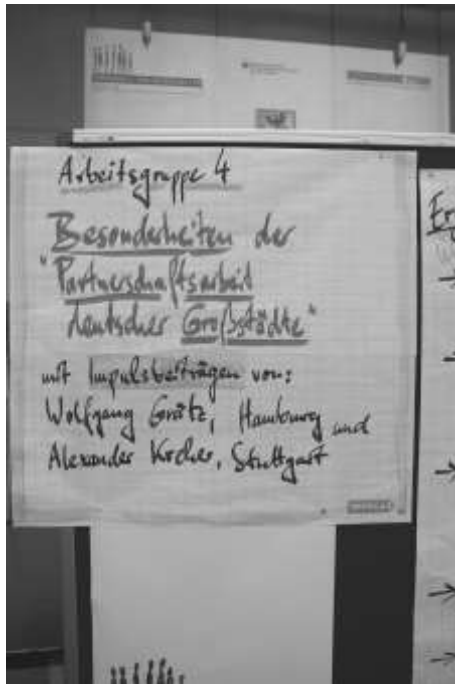 Arbeitsgruppe 4
Besonderheiten der
"Partnerschaftsarbeit
deutscher Großstädte"
mit Impulsbeiträgen von:
Wolfgang Grätz, Hamburg und
Alexander Kreher, Stuttgart